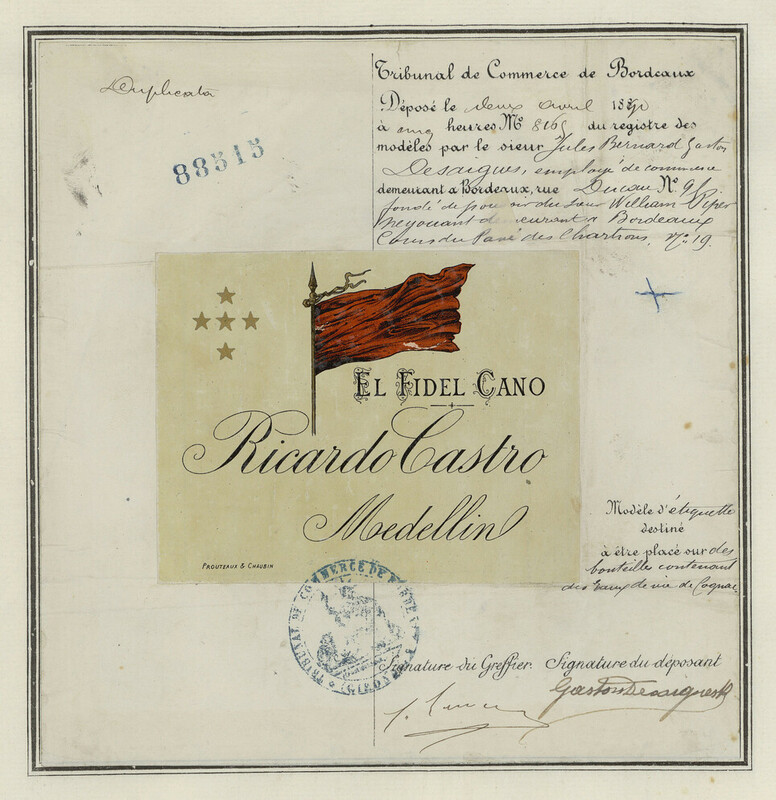 Duplicata
88515
Tribunal de Commerce de Bordeaux
Déposé le deux avril
à cinq heures No 8165 du registre des
modèles par le sieur Jules Bernard Gaston
Desaigues, employé de commerce
demeurant a Bordeaux, rue Ducau No 91.
fondé de pouvoir du sieur William Piper
negociant demeurant a Bordeaux
Cours du Pavé des Chartrons, No 19.
EL FIDEL CANO
Ricardo Castro
Medellin
PROUTEAUX & CHAUBIN
Modèle d'étiquette
destiné
à être placé sur des
bouteilles contenant
des Eaux de vie de Cognac
TRIBUNAL DE COMMERCE DE BORDEAUX
(GIRONDE)
Signature du Greffier. Signature du déposant
Gaston Desaigues